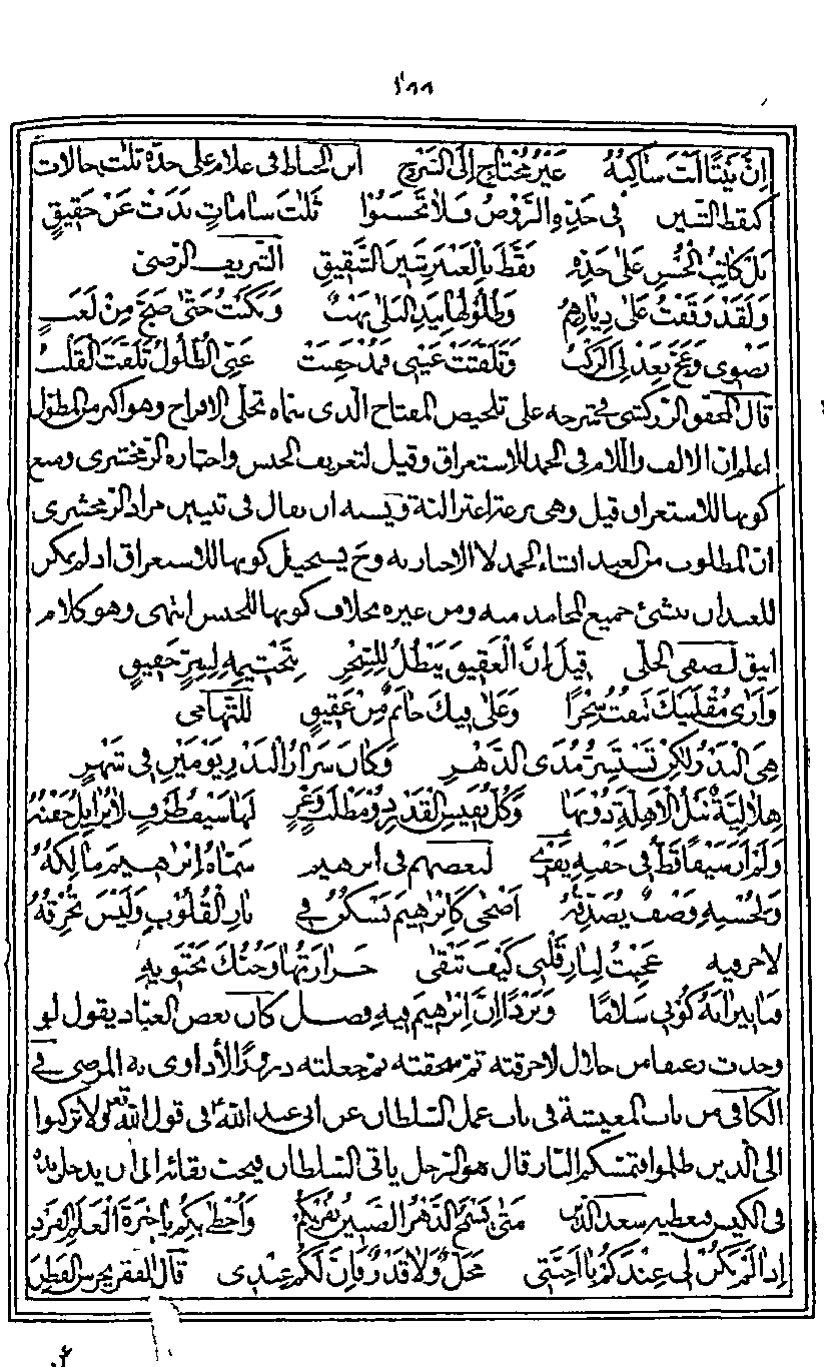 ١٨٨
اِنَّ بَيْتًا اَنْتَ سَاكِنُهُ غَيْرُ مُحْتَاجٍ اِلَى السُّرُجِ ابن الخياط فى غلام على خدّه ثلث حالات
كنقط الشين فى خَدِّهِ الرَّوْضُ فَلَا تَحْسَبُوْا ثَلٰثَ شَامَاتٍ بَدَتْ عَنْ حَقِيْقٍ
بَلْ كَاتِبُ الْحُسْنِ عَلٰى خَدِّهِ نَقَّطَ بِالْعَنْبَرِ شِيْنَ الشَّقِيْقِ الشريف الرضىّ
وَلَقَدْ وَقَفْتُ عَلٰى دِيَارِهِمْ وَطُلُوْلُهَا بِيَدِ الْبَلٰى نَهْبٌ وَبَكَيْتُ حَتّٰى ضَجَّ مِنْ لَغَبٍ
نِضْوِى وَعَجَّ بَعْدَ لِىَ الرَّكْبُ وَتَلَفَّتَتْ عَيْنِى فَمُذْ خَفِيَتْ عَنِّى الطُّلُوْلُ تَلَفَّتَ الْقَلْبُ
قال المحقق الزركشى فى شرحه على تلخيص المفتاح الّذى سماه تجلّى الافراح وهو اكبر من المطوّل
اعلم انّ الالف واللام فى الحمد للاستغراق وقيل لتعريف الجنس واختاره الزمخشرى ومنع
كونها للاستغراق قيل وهى نزعة اعتزاليّة ويشبه ان يقال فى تبيين مراد الزمخشرى
انّ المطلوب من العبد انشاء الحمد لا الاخبار به وح يستحيل كونها للاستغراق اذ لم يمكن
للعبد ان ينشئ جميع المحامد منه ومن غيره بخلاف كونها للجنس انتهى وهو كلام
انيق لصفى الحلّى قِيْلَ اِنَّ الْعَقِيْقَ يَبْطُلُ لِلسِّحْرِ بِتَخْتِيْمِهِ لِسِرٍّ حَقِيْقٍ
وَاَرٰى مُقْلَتَيْكَ تَنْفُثُ سِحْرًا وَعَلٰى فِيْكَ خَاتَمٌ مِنْ عَقِيْقٍ للتهامى
هِىَ الْبَدْرُ وَلٰكِنْ تَسْتَسِرُّ مُدَى الدَّهْرِ وَكَانَ سَرَارُ الْبَدْرِ يَوْمَيْنِ فِى شَهْرٍ
هِلَالِيَّةٌ نَيْلُ الْاَهِلَّةِ دُوْنَهَا وَكُلُّ نَفِيْسِ الْقَدْرِ ذُوْ مَطْلَبٍ وَعْرٍ لَهَا سَيْفُ طَرْفٍ لَا يُزَايِلُ جَفْنَهُ
وَلَمْ اَرَ سَيْفًا قَطُّ فِى جَفْنِهِ يَفْرِى لبعضهم فى ابرهيم سَمَّاهُ اِبْرٰهِيْمَ مَالِكُهُ
وَلِحُسْنِهِ وَصْفٌ يُصَدِّقُهُ اَضْحٰى كَاِبْرٰهِيْمَ يَسْكُنُ فِى نَارِ الْقُلُوْبِ وَلَيْسَ تُحْرِقُهُ
لاخر فيه عَجِبْتُ لِنَارِ قَلْبِى كَيْفَ تَبْقٰى حَرَارَتُهَا وَحُبُّكَ يَحْتَوِيْهِ
فَيَا نِيْرَانَهُ كُوْنِى سَلَامًا وَبَرْدًا اِنَّ اِبْرٰهِيْمَ فِيْهِ فصل كان بعض العبّاد يقول لو
وجدت رغيفا من حلال لاحرقته ثمّ سحقته ثم جعلته ذرورًا لاداوى به المرضى فى
الكافى من باب المعيشة فى باب عمل السّلطان عن ابى عبد اللّٰه ع فى قول اللّٰه تعو ولا تركنوا
الى الّذين ظلموا فتمسّكم النّار قال هو الرّجل ياتى السّلطان فيحبّ بقائه الى ان يدخل يده
فى الكيس فيعطيه سعد الدّين مَتٰى يَسْمَحُ الدَّهْرُ الضَّنِيْنُ بِقُرْبِكُمْ وَاَحْظٰى بِكُمْ يَا جِيْرَةَ الْعَلَمِ الْفَرْدِ
اِذَا لَمْ يَكُنْ لِى عِنْدَكُمْ يَا اَحِبَّتِى مَحَلٌّ وَلَا قَدْرٌ فَاِنَّ لَكُمْ عِنْدِى قال الفقر